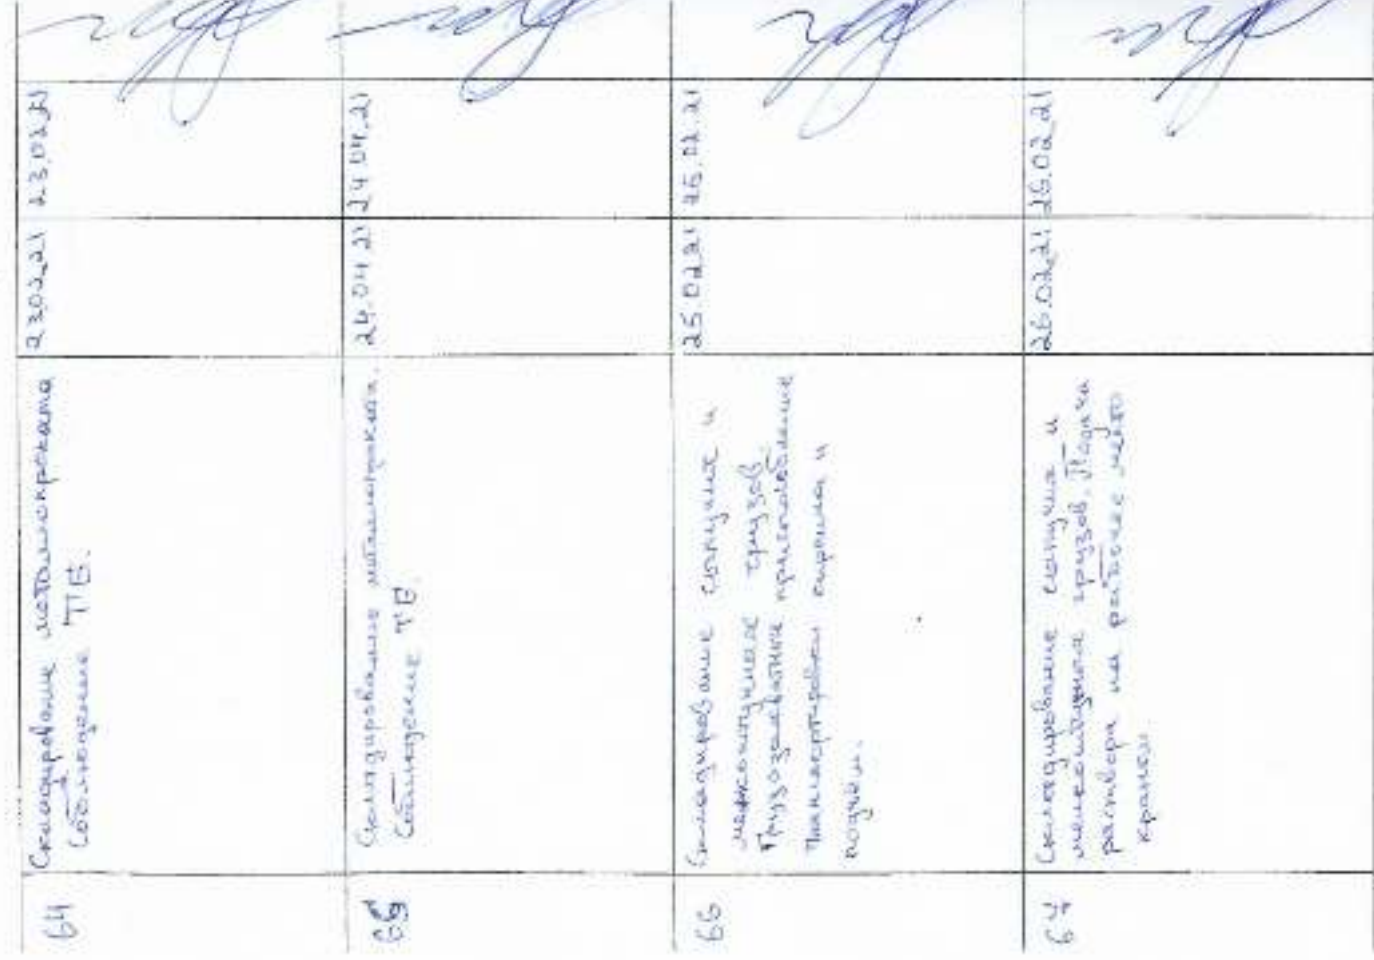 64
Складирование металлопроката
Соблюдение ТБ.
23.02.21
23.02.21
65
Складирование металлопроката.
Соблюдение ТБ.
24.04.21
24.04.21
66
Складирование сыпучих и
мелкоштучных грузов.
Грузозахватные приспособления
транспортировки кирпича и
25.02.21
25.02.21
67
Складирование сыпучих и
мелкоштучных грузов. Подача
раствора на рабочее место
краном.
26.02.21
26.02.21